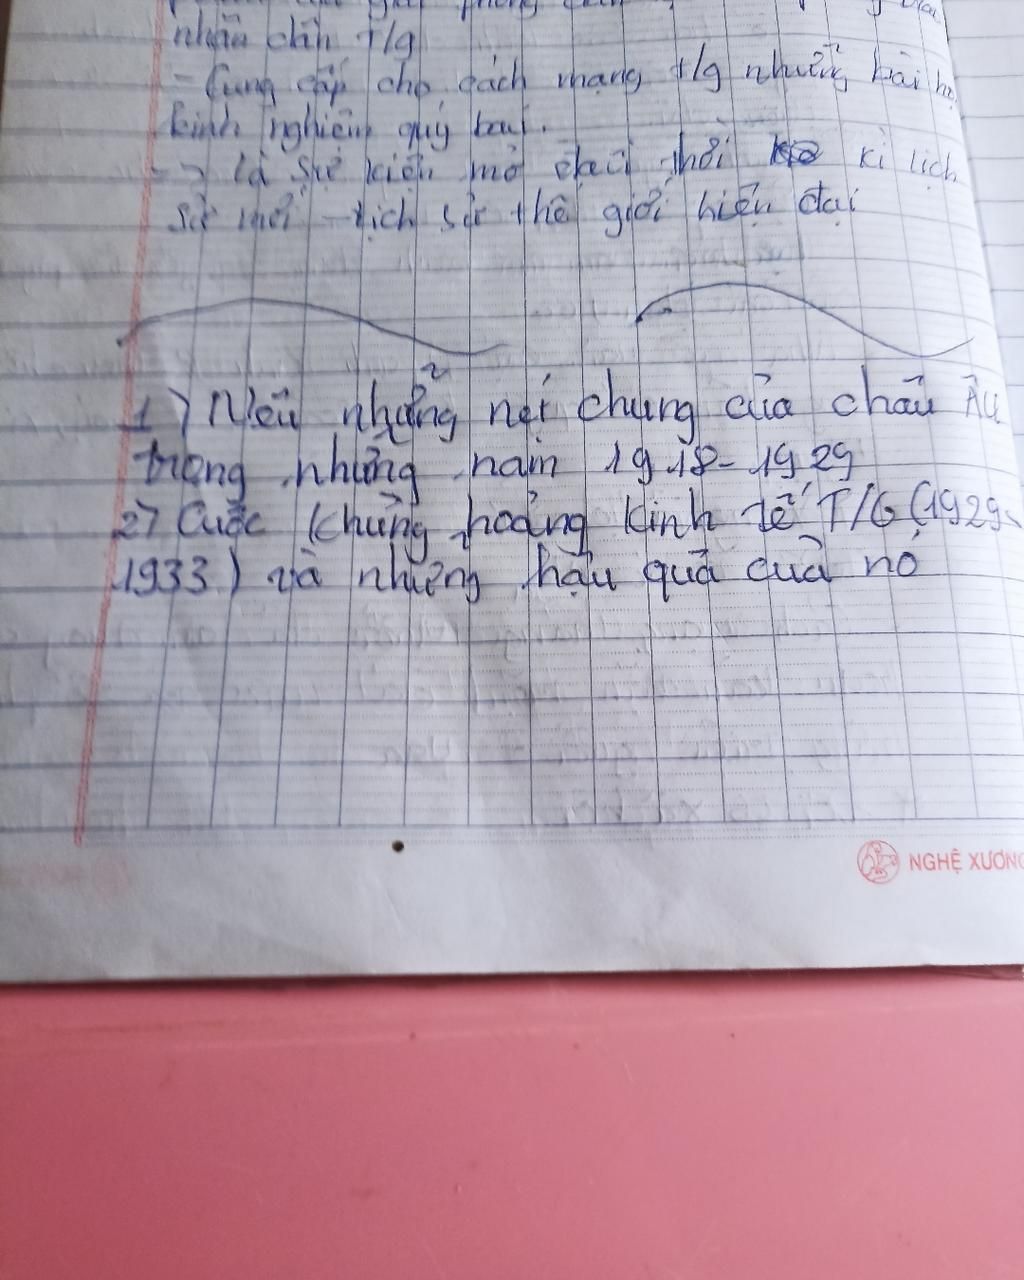 nhân dân t/g
- Cung cấp cho cách mạng t/g những bài họ
kinh nghiệm quý báu.
-> là sự kiện mở đầu thời kì lịch
sử mới - lịch sử thế giới hiện đại
1) Nêu những nét chung của châu Âu
trong những năm 1918-1929
2) Cuộc khủng hoảng kinh tế T/G (1929-
1933) và những hậu quả của nó
NGHỆ XƯƠNG